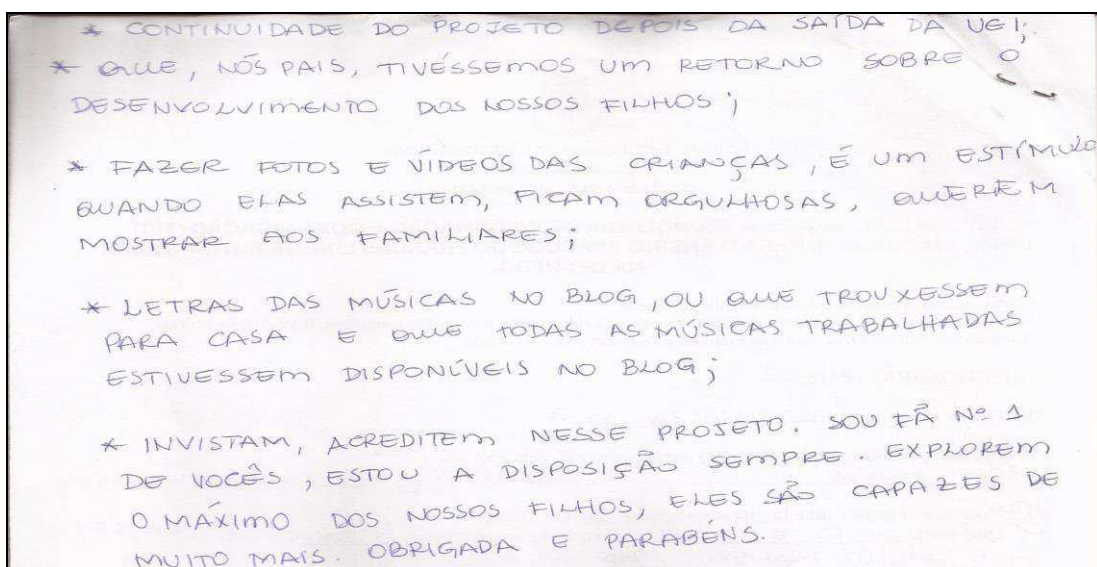 * CONTINUIDADE DO PROJETO DEPOIS DA SAÍDA DA UEI;
* QUE, NÓS PAIS, TIVÉSSEMOS UM RETORNO SOBRE O
DESENVOLVIMENTO DOS NOSSOS FILHOS;
* FAZER FOTOS E VÍDEOS DAS CRIANÇAS, É UM ESTÍMULO
QUANDO ELAS ASSISTEM, FICAM ORGULHOSAS, QUEREM
MOSTRAR AOS FAMILIARES;
* LETRAS DAS MÚSICAS NO BLOG, OU QUE TROUXESSEM
PARA CASA E QUE TODAS AS MÚSICAS TRABALHADAS
ESTIVESSEM DISPONÍVEIS NO BLOG;
* INVISTAM, ACREDITEM NESSE PROJETO. SOU FÃ Nº 1
DE VOCÊS, ESTOU A DISPOSIÇÃO SEMPRE. EXPLOREM
O MÁXIMO DOS NOSSOS FILHOS, ELES SÃO CAPAZES DE
MUITO MAIS. OBRIGADA E PARABÉNS.